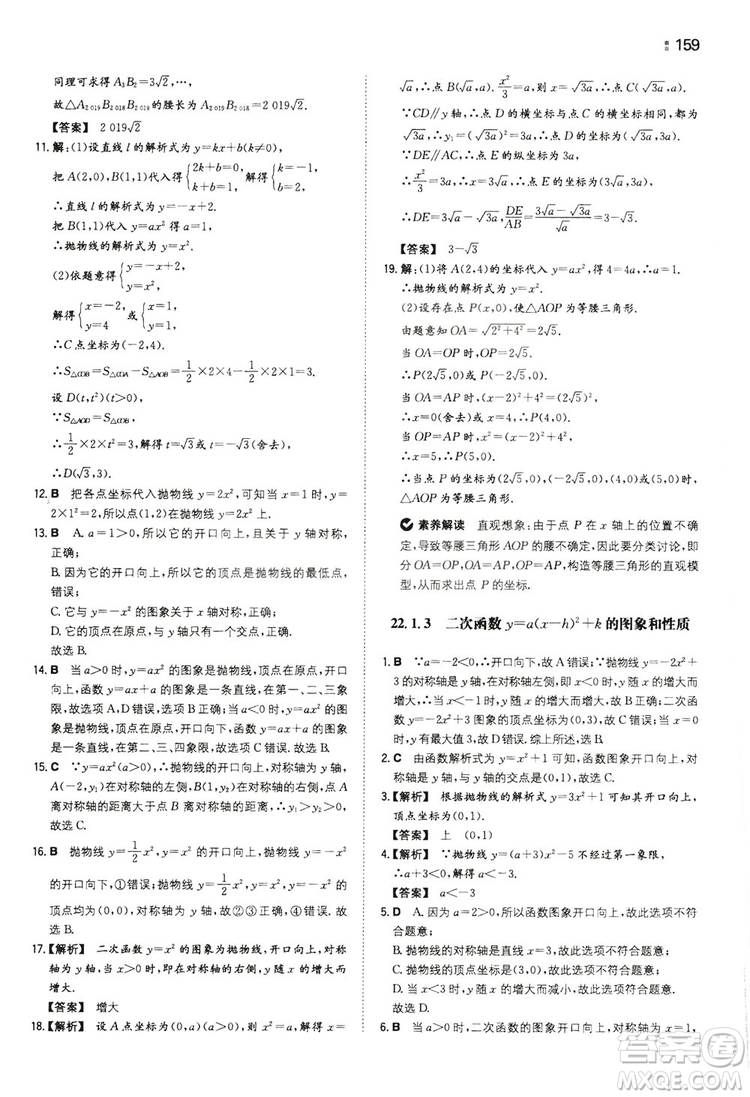 159
同理可求得 A₃B₂=3√2,…,
故△A₂₀₁₉B₂₀₁₈B₂₀₁₉的腰长为 2 019√2.
【答案】 2 019√2
11. 解:(1)设直线 l 的解析式为 y=kx+b(k≠0),
把 A(2,0),B(1,1)代入得{2k+b=0 k+b=1 解得{k=-1 b=2
∴直线 l 的解析式为 y=-x+2.
把 B(1,1)代入 y=ax² 得 a=1,
∴抛物线的解析式为 y=x².
(2)依题意得{y=-x+2 y=x²
解得{x=-2 y=4 或{x=1 y=1
∴C 点坐标为(-2,4),
∴S△COB=S△AOC-S△AOB=1/2×2×4-1/2×2×1=3.
设 D(t,t²)(t>0),
∵S△AOD=S△COB,
∴1/2×2×t²=3,解得 t=√3或 t=-√3(舍去),
∴D(√3,3).
12. B 把各点坐标代入抛物线 y=2x²,可知当 x=1时,y=
2×1²=2,所以点(1,2)在抛物线 y=2x² 上.故选 B.
13. B A.a=1>0,所以它的开口向上,且关于 y 轴对称,
正确;
B.因为它的开口向上,所以它的顶点是抛物线的最低点,
错误;
C.它与 y=-x² 的图象关于 x 轴对称,正确;
D.它的顶点在原点处,坐标为(0,0),正确.
故选 B.
14. C 当 a>0时,y=ax² 的图象是抛物线,顶点在原点,开口
向上,函数 y=ax+a 的图象是一条直线,在第一、二、三象
限,故选项 A,D错误,选项 C正确;当 a<0时,y=ax² 的图
象是抛物线,顶点在原点,开口向下,函数 y=ax+a 的图象
是一条直线,在第二、三、四象限,故选项 B错误.故选 C.
15. C ∵y=ax²(a>0),∴抛物线的开口向上,对称轴为 y 轴,
A(-2,y₁)在对称轴的左侧,B(1,y₂)在对称轴的右侧,点 A
离对称轴的距离大于点 B离对称轴的距离,∴y₁>y₂>0.
故选 C.
16. B 抛物线 y=1/2x²,y=x² 的开口向上,抛物线 y=-x²
的开口向下,①错误;抛物线 y=1/2x²,y=x²,y=-x² 的
顶点均为(0,0),对称轴为 y 轴,②③正确;④错误.
故选 B.
17. 【解析】 二次函数 y=x² 的图象为抛物线,开口向上,对称
轴为 y 轴,当 x>0时,y 随 x 的增大而
增大.
【答案】 增大
18. 【解析】 设 A 点坐标为(0,a)(a>0),则 x²=a,解得 x=
√a,∴点 B(√a,a),x²/3=a,则 x=√3a,∴点 C(√3a,a).
∵CD∥y 轴,∴点 D 的横坐标与点 C 的横坐标相同,为
√3a,∴y₁=(√3a)²=3a,∴点 D 的坐标为(√3a,3a).
∵DE∥AC,∴点 E 的纵坐标为3a,
∴x²/3=3a,∴x=3√a,∴点 E 的坐标为(3√a,3a),
∴DE=3√a-√3a,DE/AB=(3√a-√3a)/√a=3-√3.
【答案】 3-√3
19. 解:(1)将 A(2,4)的坐标代入 y=ax²,得4=4a,解得 a=1,
∴抛物线的解析式为 y=x².
(2)设存在点 P(x,0),使△AOP 为等腰三角形.
由题意知 OA=√(2²+4²)=2√5.
当 OA=OP 时,OP=2√5,
∴x=2√5或 x=-2√5.
当 OA=AP 时,(x-2)²+4²=(2√5)²,
∴x=0(舍去)或 x=4.
当 OP=AP 时,(x-2)²+4²=x²,
∴x=5.
∴当点 P 的坐标为(2√5,0),(-2√5,0),(4,0),(5,0)时,
△AOP 为等腰三角形.
素养解读 直观想象:由于点 P 在 x 轴上的位置不确
定,导致等腰三角形 AOP 的腰不确定,因此要分类讨论,即
分 OA=OP,OA=AP,OP=AP,构造等腰三角形的直观模
型,从而求出点 P 的坐标.
22.1.3 二次函数 y=a(x-h)²+k 的图象和性质
1. B ∵a=-2<0,∴开口向下,故 A正确;二次函数 y=-2x²+
3的对称轴是 y 轴,在对称轴左侧,y 随 x 的增大而增大,
∴当 x<-1时,y 随 x 的增大而增大,故 B正确;二次函
数 y=-2x²+3的顶点坐标为(0,3),故 C错误;当 x=0
时,y 有最大值3,故 D错误.综上所述,选 B.
2. C 由函数解析式可知,对称轴为 y 轴.故选 C.
3. 【解析】 根据抛物线的解析式 y=3x²+1可知,开口向上,
顶点坐标为(0,1).
【答案】 上 (0,1)
4. 【解析】 ∵抛物线 y=(a+3)x²-5不经过第一象限,
∴a+3<0,∴a<-3.
【答案】 a<-3
5. D A.∵a=2>0,所以函数图象开口向上,故此选项不符
合题意;
B.抛物线的对称轴是直线 x=3,故此选项不符合题意;
C.抛物线的顶点坐标是(3,0),故此选项不符合题意;
D.当 x<3时,y 随 x 的增大而减小,故此选项符合题意.
故选 D.
6. B 当 a>0时,二次函数的图象开口向上,当 x=1时,